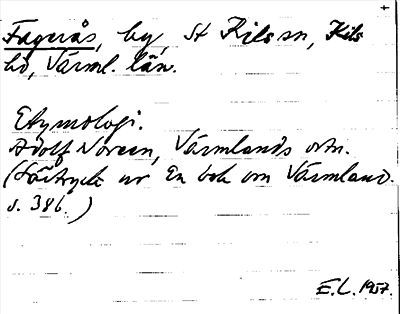 Fagerås, by, St Kils sn, Kils
hd, Värml. län.
Etymologi.
Adolf Noreen, Värmlands ortn.
(Särtryck ur En bok om Värmland.
s. 386.)
E.L. 1957.